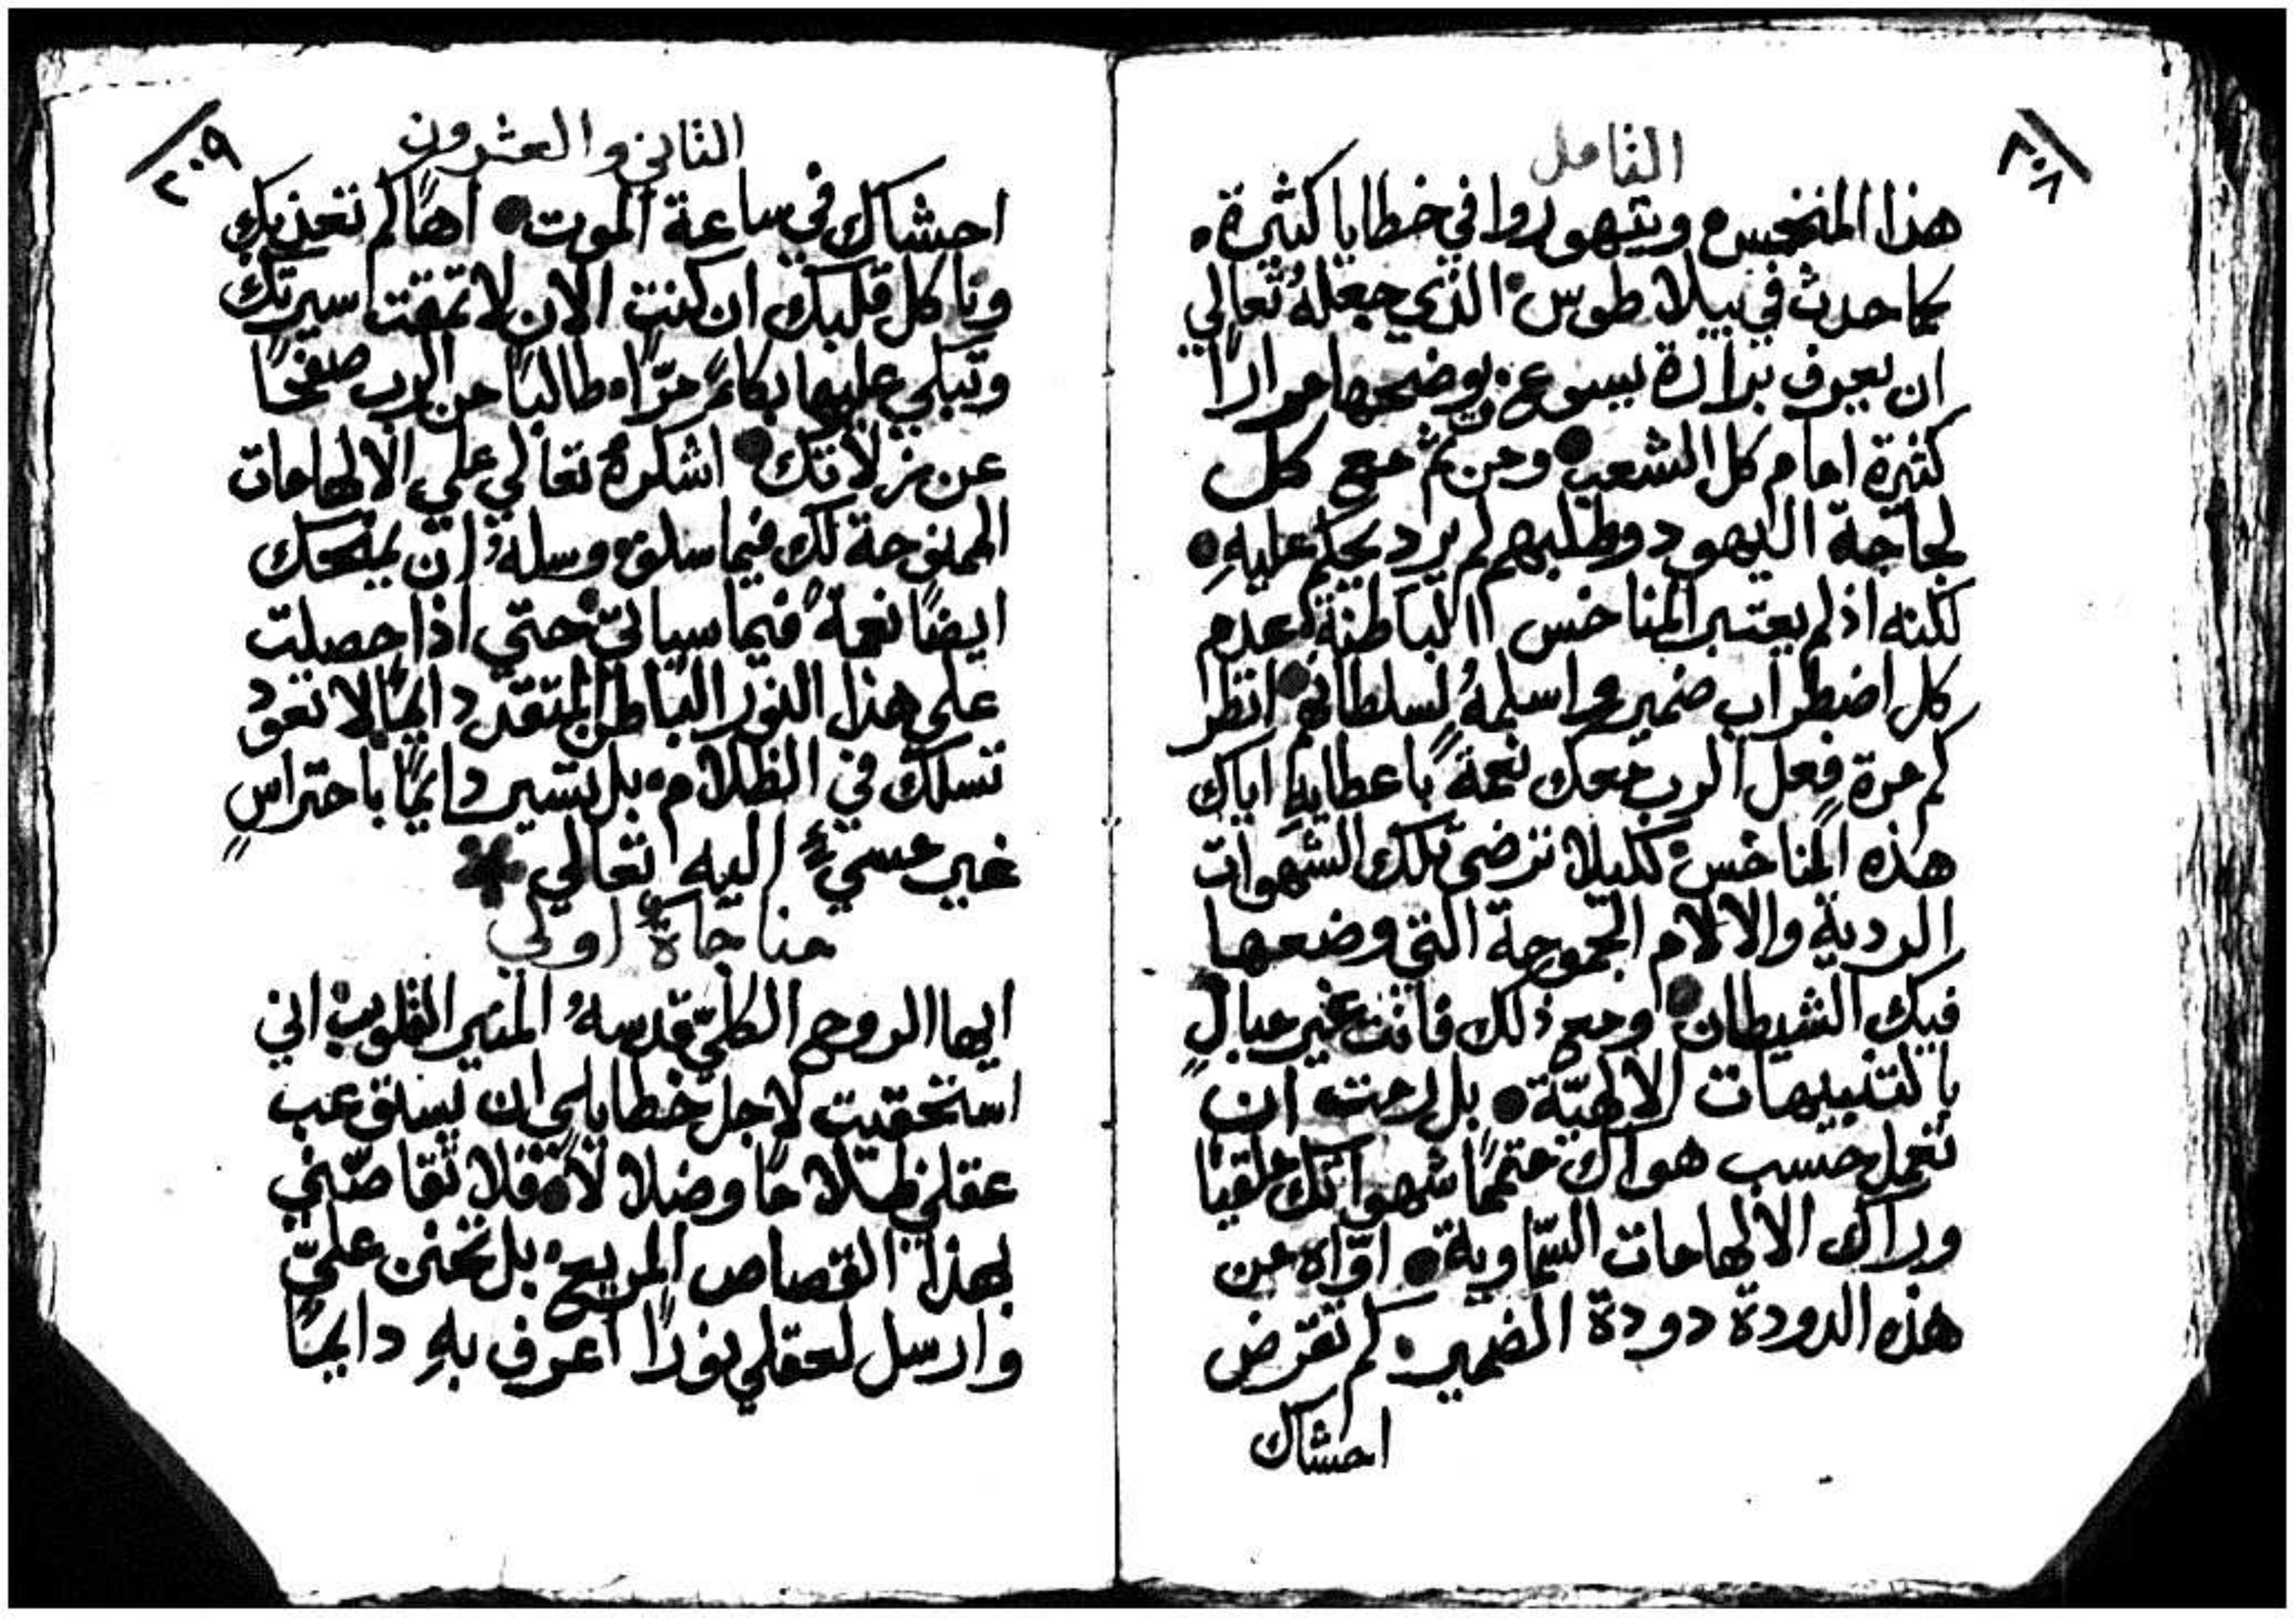 ٢٠٨
التامل
هذا المنخس٠ ويتهوروا في خطايا كثيرة٠
كما حدث في بيلاطوس٠ الذي جعلهُ تعالي
ان يعرف برارة يسوع٠ يوضحها مرارًا
كثيرة امام كل الشعب● ومن ثم مع كل
لجاجة اليهود وطلبهم لم يرد يحكم عليهِ●
لكنه اذ لم يعتبر المناخس الباطنة٠ عدم
كل اضطراب ضميره واسلمهُ لسلطانهم● انظر
كم مرة فعل الرب معك نعمةً باعطايهِ اياك
هذه المناخس٠ لكيلا ترضي تلك الشهوات
الردية والالام الجموحة التي وضعها
فيك الشيطان● ومع ذلك فانت غير مبالٍ
بالتنبيهات الالهيّة● بل رمت ان
تعمل حسب هواك متممًا شهواتك ملقيًا
وراك الالهامات السّماوية● اوّاه من
هذه الدودة دودة الضمير٠ كم تقرض
احشاك
٢٠٩
الثاني والعشرون
احشاك في ساعة الموت● اهًا كم تعذبك
وتاكل قلبك ان كنت الان لا تمقت سيرتك
وتبكي عليها بكاءً مرّا٠ طالبًا من الرب صفحًا
عن زلاتك● اشكرهُ تعالي علي الالهامات
الممنوحة لك فيما سلف٠ وسلهُ ان يمنحك
ايضًا نعمةً فيما سياتي٠ حتي اذا حصلت
علي هذا النور الباطن المتقد دايمًا لا تعود
تسلك في الظلام٠ بل تسير دايمًا باحتراسٍ
غير مسيءٍ اليه تعالي ✱
مناجاةٌ اولي
ايها الروح الكليّ قدسهُ المنير القلوب٠ اني
استحقيت لاجل خطاياي ان يسلق عب
عقلي ظلامًا وضلالاً٠ فلا تقاصّني
بهذا القصاص المريع٠ بل تحنن عليّ
وارسل لعقلي نورًا اعرف بهِ دايمًا